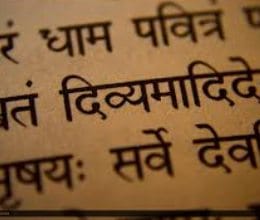 रं धाम पवित्रं प
तं दिव्यमादिदे
मृषयः सर्वे देव